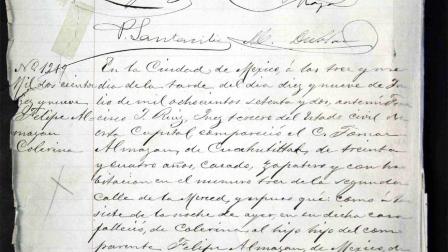 P. Santacilia M. Dublan
Nº 1219
Mil doscientos
diez y nueve
Felipe Al
mazan
Colerina
En la Ciudad de Mexico, á las tres y me
dia de la tarde del dia diez y nueve de Ju
lio de mil ochocientos setenta y dos, ante mi Fran
cisco T. Ruiz, Juez tercero del Estado Civil de
esta Capital, compareció el C. Tomas
Almazan, de Cuahutitlan, de treinta
y cuatro años, casado, zapatero y con ha
bitacion en el número tres de la segunda
calle de la Merced, y expuso que: como á las
siete de la noche de ayer, en su dicha casa
falleció, de Colerina, el hijo del com
parente Felipe Almazan, de Mexico, de